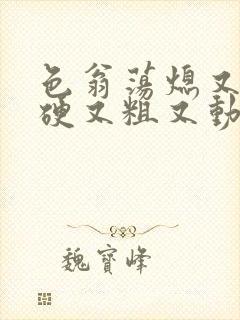 色翁荡熄又
硬又粗又動
魏寶峰